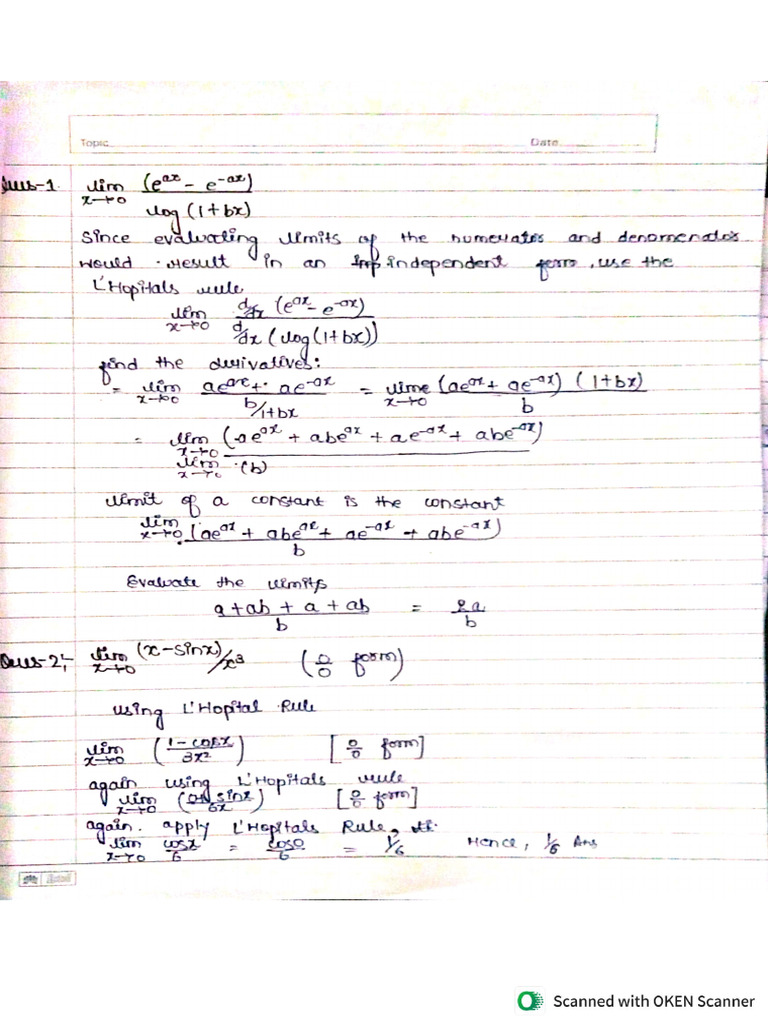 Topic Date
Ques-1. lim x→0 (e^ax - e^-ax) / log(1+bx)
Since evaluating limits of the numerator and denomenator
would result in an independent form, use the
L'Hopitals rule
lim x→0 d/dx (e^ax - e^-ax) / d/dx (log(1+bx))
find the derivatives:
= lim x→0 ae^ax + ae^-ax / b/1+bx = lim x→0 (ae^ax + ae^-ax) (1+bx) / b
= lim x→0 (ae^ax + abe^ax + ae^-ax + abe^-ax) / lim x→0 (b)
limit of a constant is the constant
lim x→0 (ae^ax + abe^ax + ae^-ax + abe^-ax) / b
Evaluate the limits
a + ab + a + ab / b = 2a / b
Ques-2:- lim x→0 (x - sinx)/x³ (0/0 form)
using L'Hopital Rule
lim x→0 (1 - cosx / 3x²) [0/0 form]
again using L'Hopitals rule
lim x→0 (0+sinx / 6x) [0/0 form]
again. apply L'Hopitals Rule,
lim x→0 cosx / 6 = cos0 / 6 = 1/6 Hence, 1/6 Ans
Scanned with OKEN Scanner